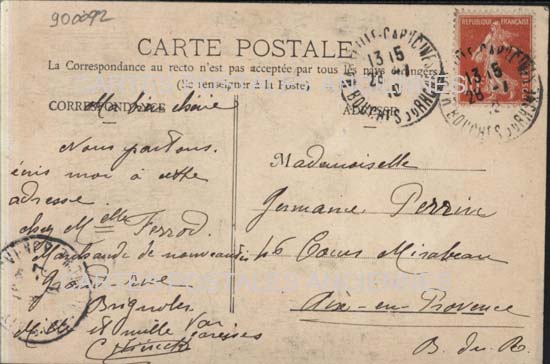 900092
CARTE POSTALE
La Correspondance au recto n'est pas acceptée par tous les pays étrangers
(Se renseigner à la Poste)
CORRESPONDANCE
ADRESSE
RÉPUBLIQUE FRANÇAISE
13 15
BOUCHES DU RHONE
Ma bien chérie
Nous partons.
écris moi à cette
adresse.
chez Melle Ferrod
Marchande de nouveautés
Grand Rue
Brignoles
Mille et mille
Mademoiselle
Germaine Perrin
46 Cours Mirabeau
Aix-en-Provence
B. du R.
CARTES POSTALES ANCIENNES